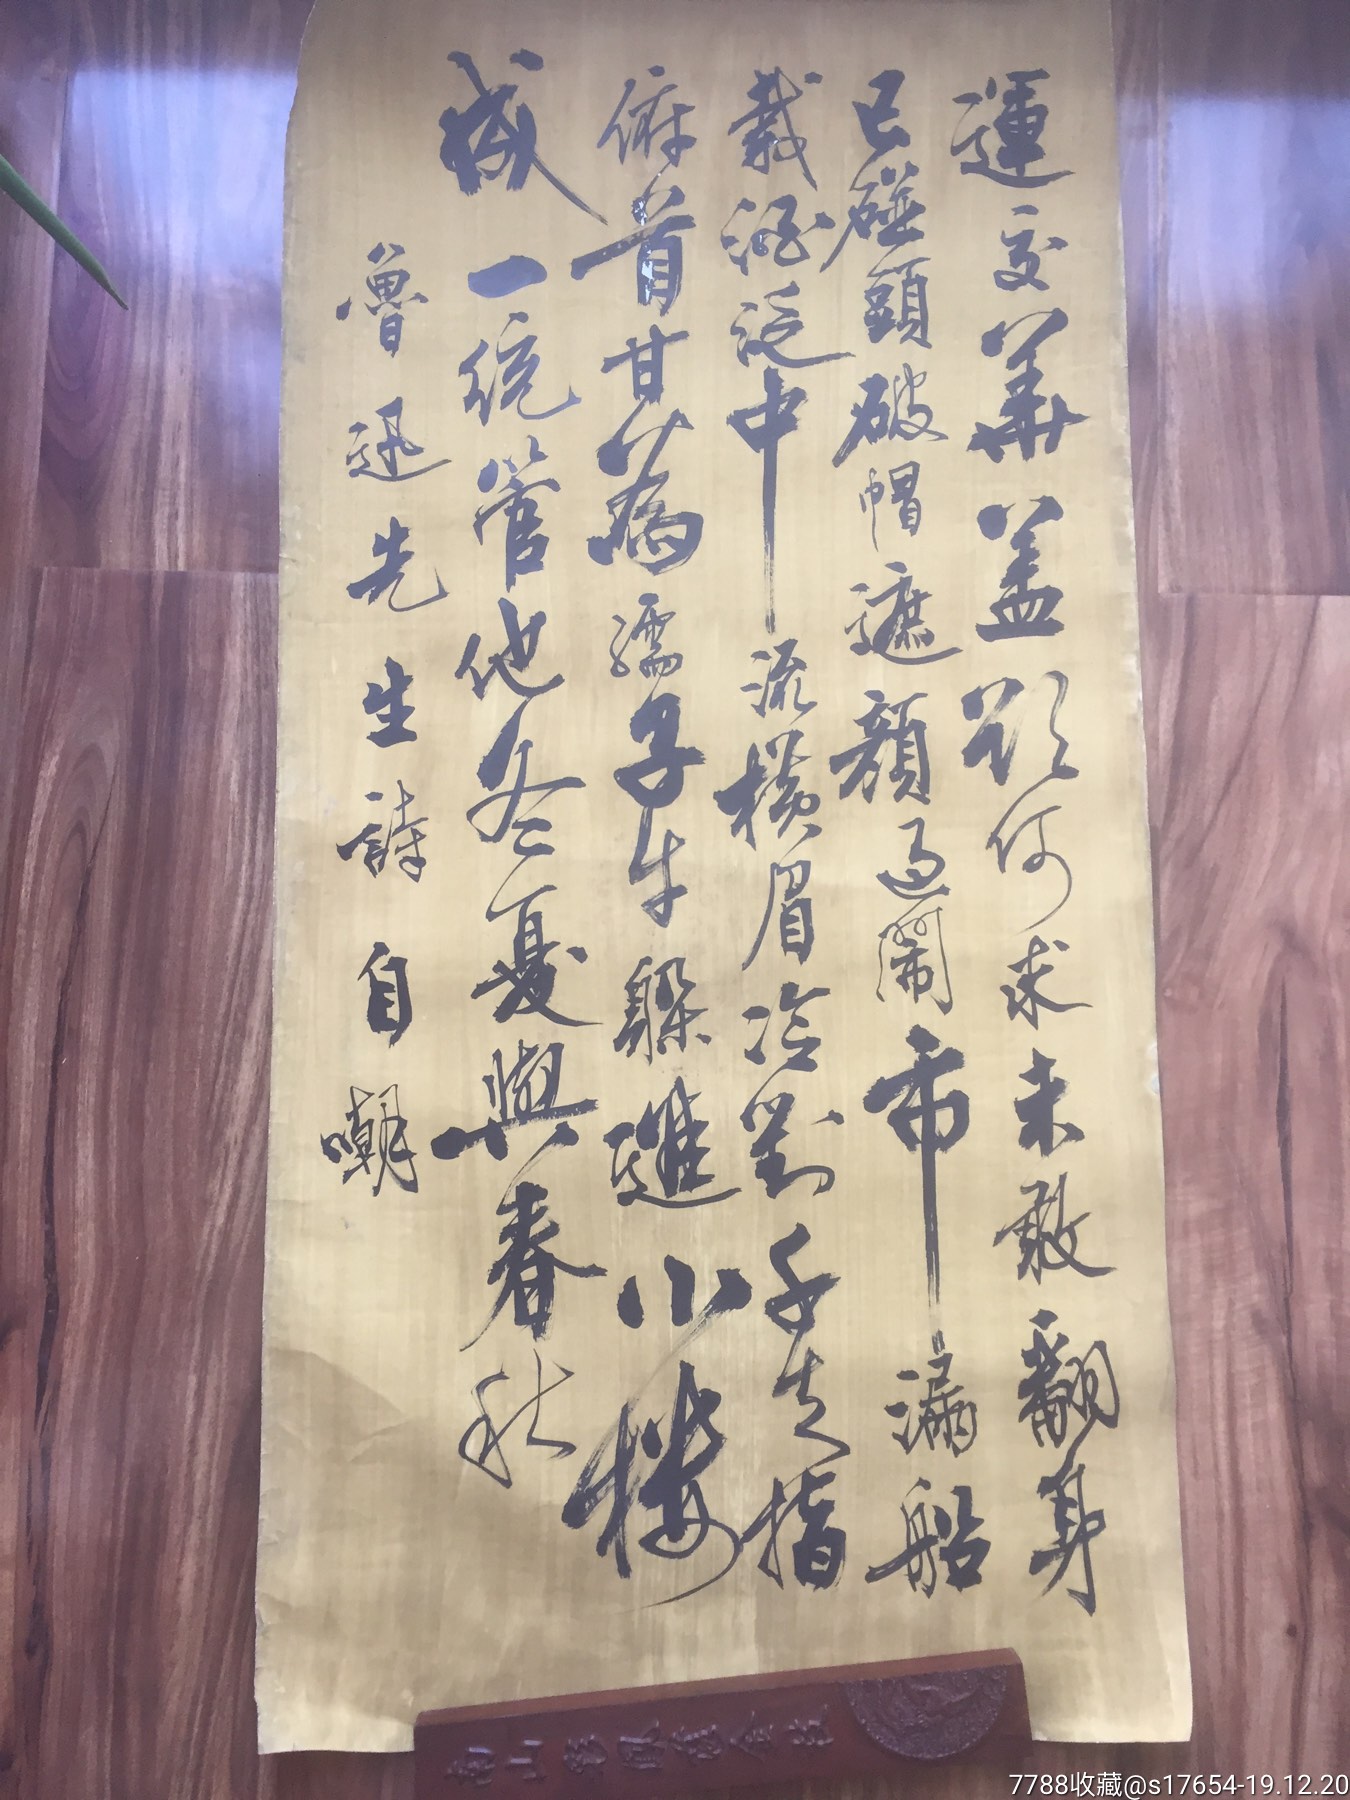 運交華盖欲何求未敢翻身
已碰頭破帽遮顏過鬧市漏船
載酒泛中流橫眉冷對千夫指
俯首甘為孺子牛躲進小樓
成一統管他冬夏與春秋
魯迅先生詩自嘲
7788收藏@s17654-19.12.20